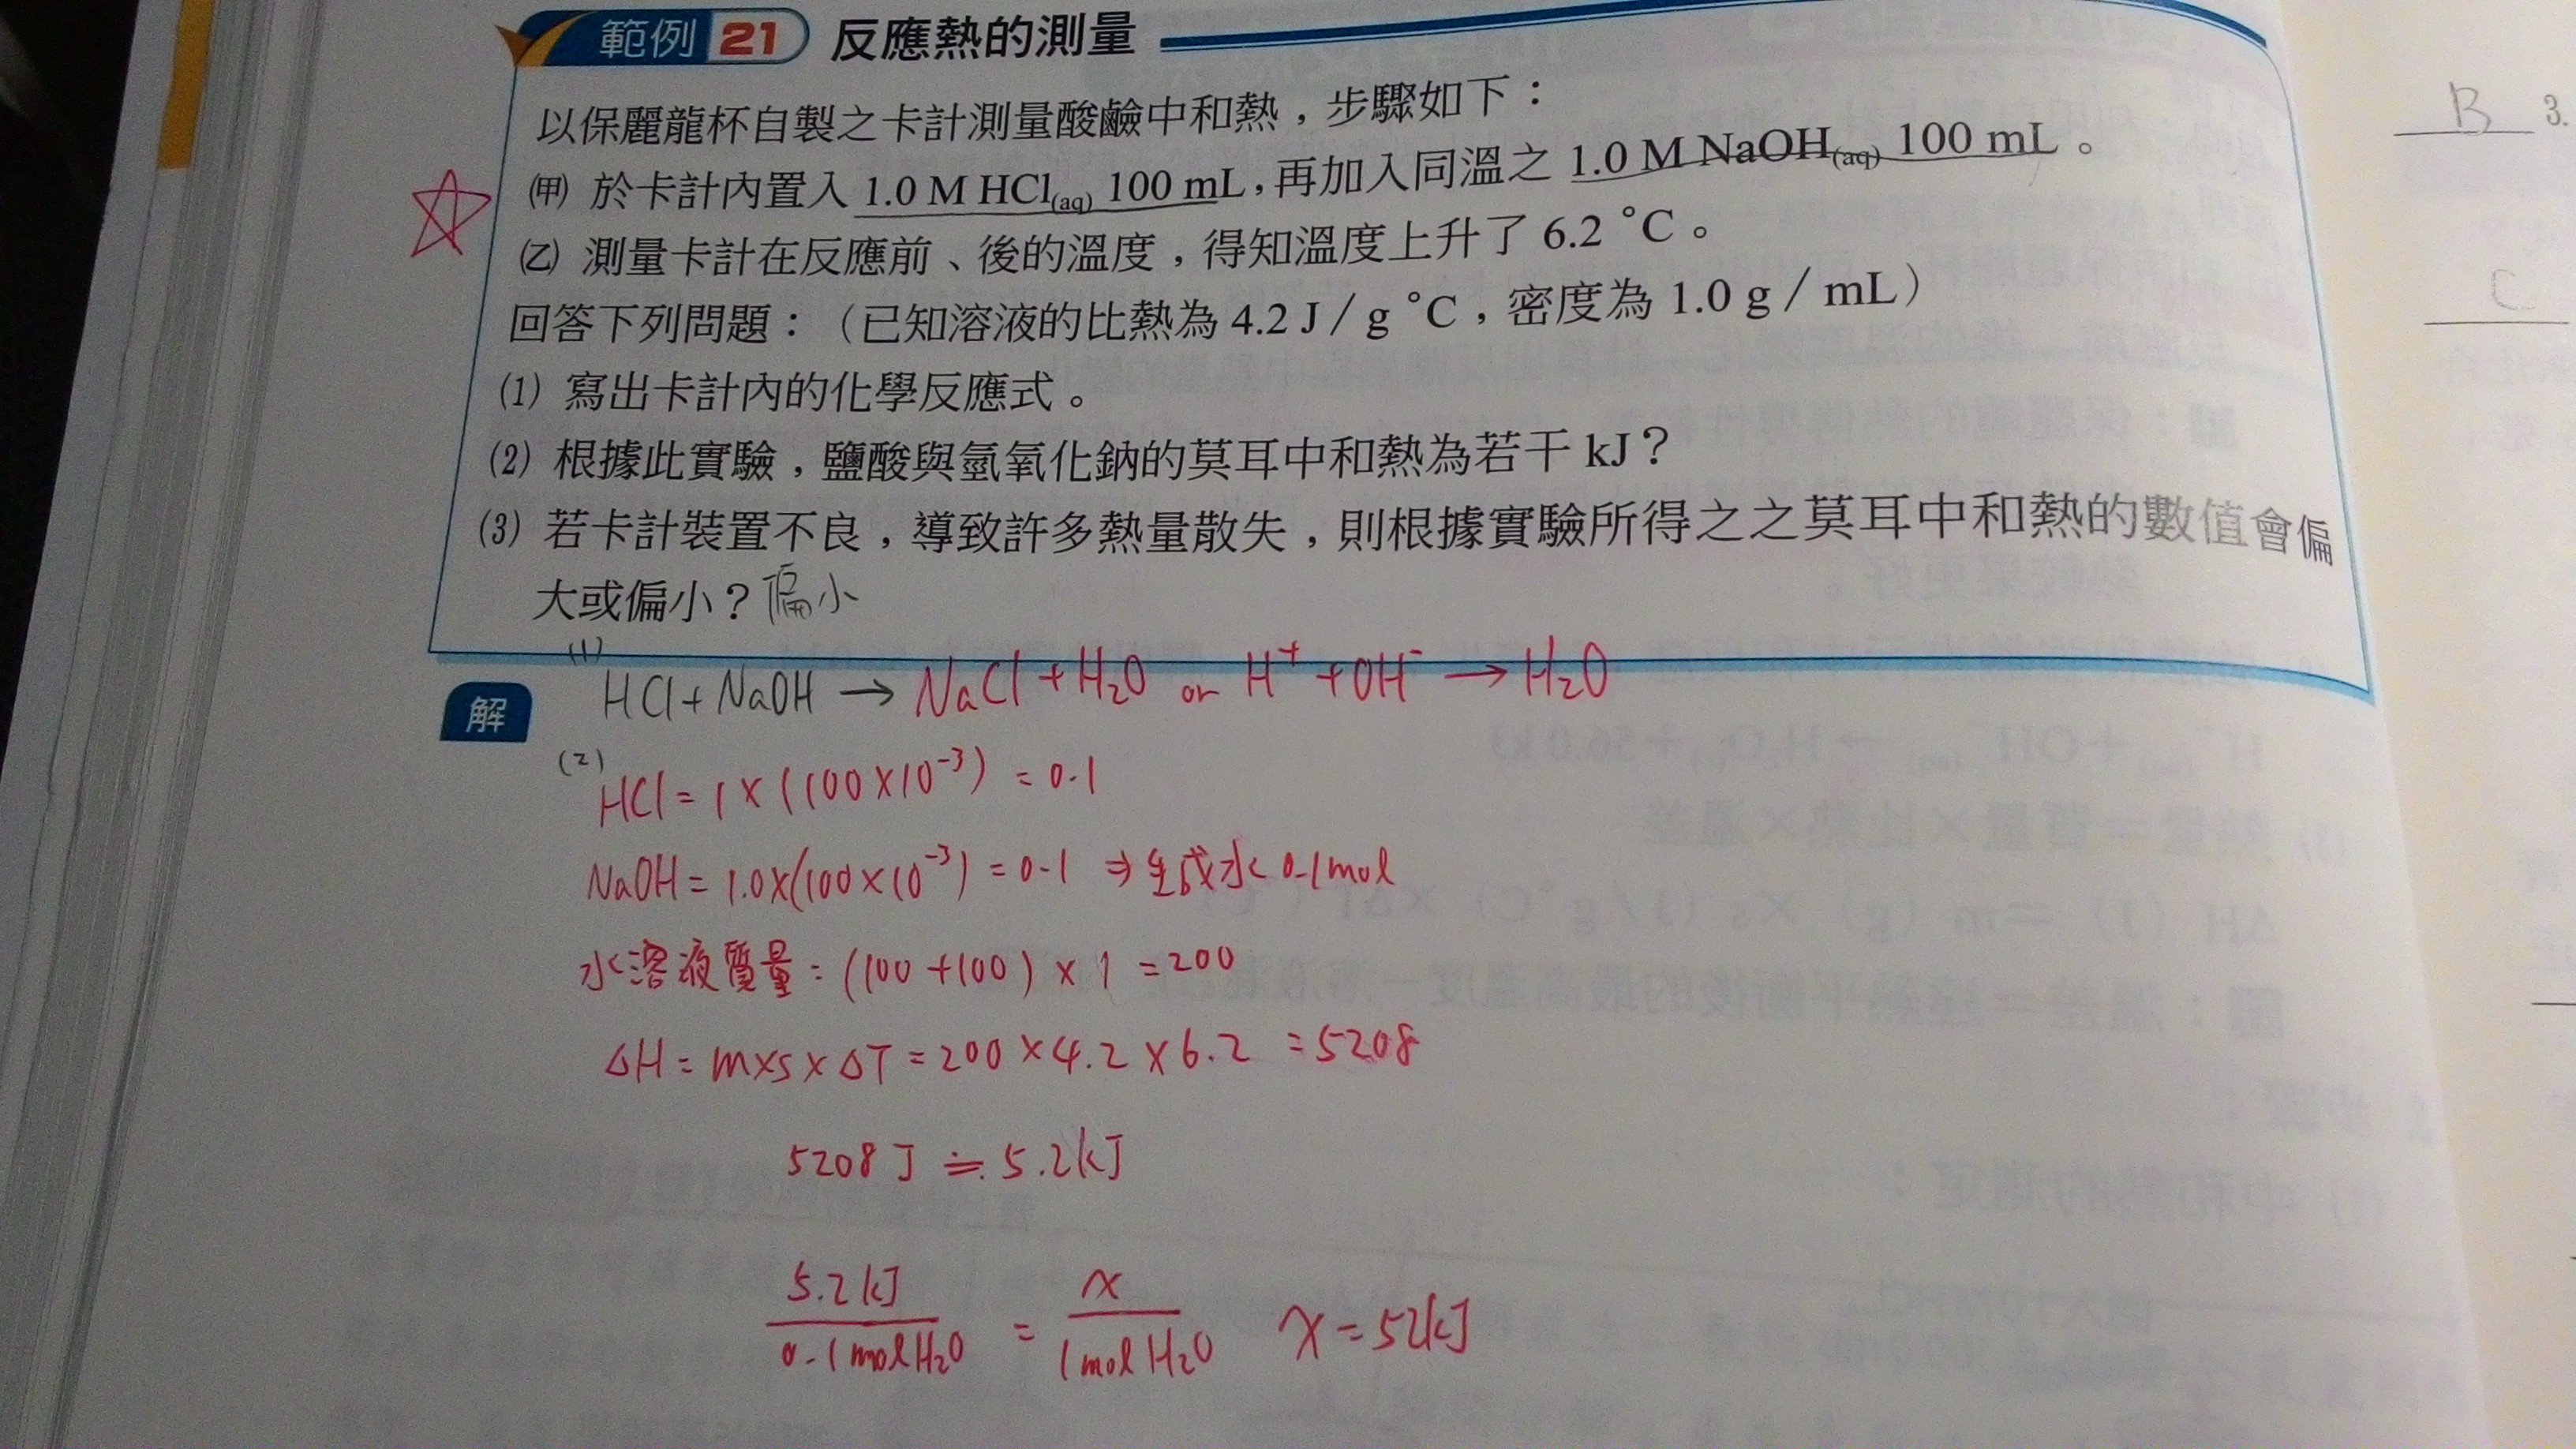 範例 21 反應熱的測量
以保麗龍杯自製之卡計測量酸鹼中和熱，步驟如下：
㈙ 於卡計內置入 1.0 M HCl(aq) 100 mL，再加入同溫之 1.0 M NaOH(aq) 100 mL。
㈚ 測量卡計在反應前、後的溫度，得知溫度上升了 6.2 ˚C。
回答下列問題：（已知溶液的比熱為 4.2 J／g ˚C，密度為 1.0 g／mL）
(1) 寫出卡計內的化學反應式。
(2) 根據此實驗，鹽酸與氫氧化鈉的莫耳中和熱為若干 kJ？
(3) 若卡計裝置不良，導致許多熱量散失，則根據實驗所得之之莫耳中和熱的數值會偏
大或偏小？偏小
解
(1)
HCl + NaOH → NaCl + H₂O or H⁺ + OH⁻ → H₂O
(2)
HCl = 1 × (100×10⁻³) = 0.1
NaOH = 1.0×(100×10⁻³) = 0.1 ⇒ 生成水 0.1mol
水溶液質量：(100+100) × 1 = 200
ΔH = m×s×ΔT = 200 × 4.2 × 6.2 = 5208
5208 J ≒ 5.2kJ
5.2kJ / 0.1molH₂O = x / 1mol H₂O x = 52kJ
B 3.
C